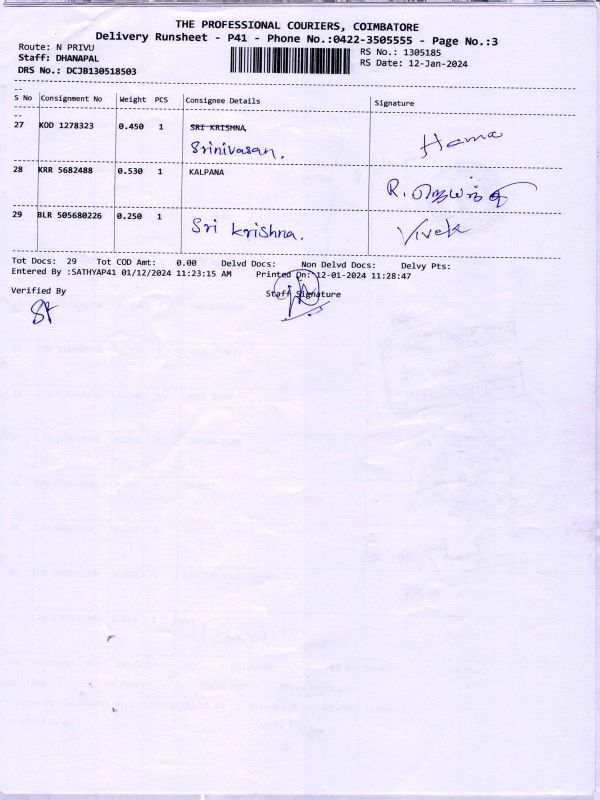 THE PROFESSIONAL COURIERS, COIMBATORE
Delivery Runsheet - P41 - Phone No.:0422-3505555 - Page No.:3
Route: N PRIVU
RS No.: 1305185
Staff: DHANAPAL
RS Date: 12-Jan-2024
DRS No.: DCJB130518503
S No Consignment No Weight PCS Consignee Details Signature
27 KOD 1278323 0.450 1 SRI KRISHNA
Srinivasan. Hema
28 KRR 5682488 0.530 1 KALPANA
R. ஜெயந்தி
29 BLR 505680226 0.250 1 Sri krishna. Vivek
Tot Docs: 29 Tot COD Amt: 0.00 Delvd Docs: Non Delvd Docs: Delvy Pts:
Entered By :SATHYAP41 01/12/2024 11:23:15 AM Printed On: 12-01-2024 11:28:47
Verified By Staff Signature